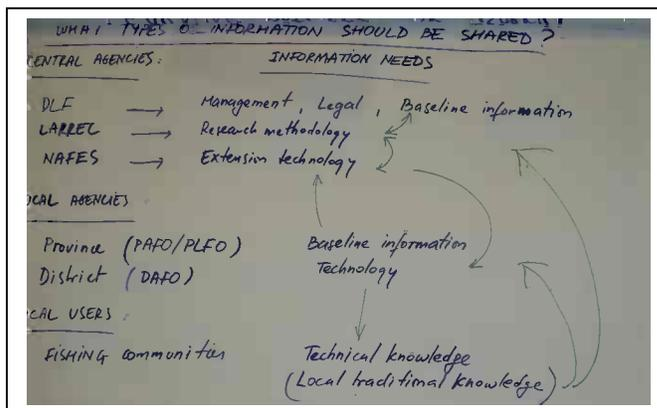 WHAT TYPES O INFORMATION SHOULD BE SHARED?
CENTRAL AGENCIES: INFORMATION NEEDS
DLF → Management, Legal, Baseline information
LARREC → Research methodology
NAFES → Extension technology
OCAL AGENCIES
Province (PAFO/PLFO) Baseline information
District (DAFO) Technology
CAL USERS:
FISHING communities Technical knowledge
(Local traditional knowledge)